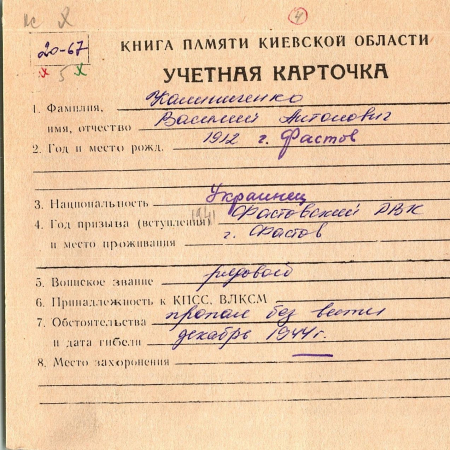 4
20-67
5
КНИГА ПАМЯТИ КИЕВСКОЙ ОБЛАСТИ
УЧЕТНАЯ КАРТОЧКА
1. Фамилия, Калиниченко
имя, отчество Василий Антонович
2. Год и место рожд. 1912 г. Фастов
3. Национальность Украинец
4. Год призыва (вступления) 1941 Фастовский РВК
и место проживания г. Фастов
5. Воинское звание рядовой
6. Принадлежность к КПСС, ВЛКСМ
7. Обстоятельства пропал без вести
и дата гибели декабрь 1944 г.
8. Место захоронения